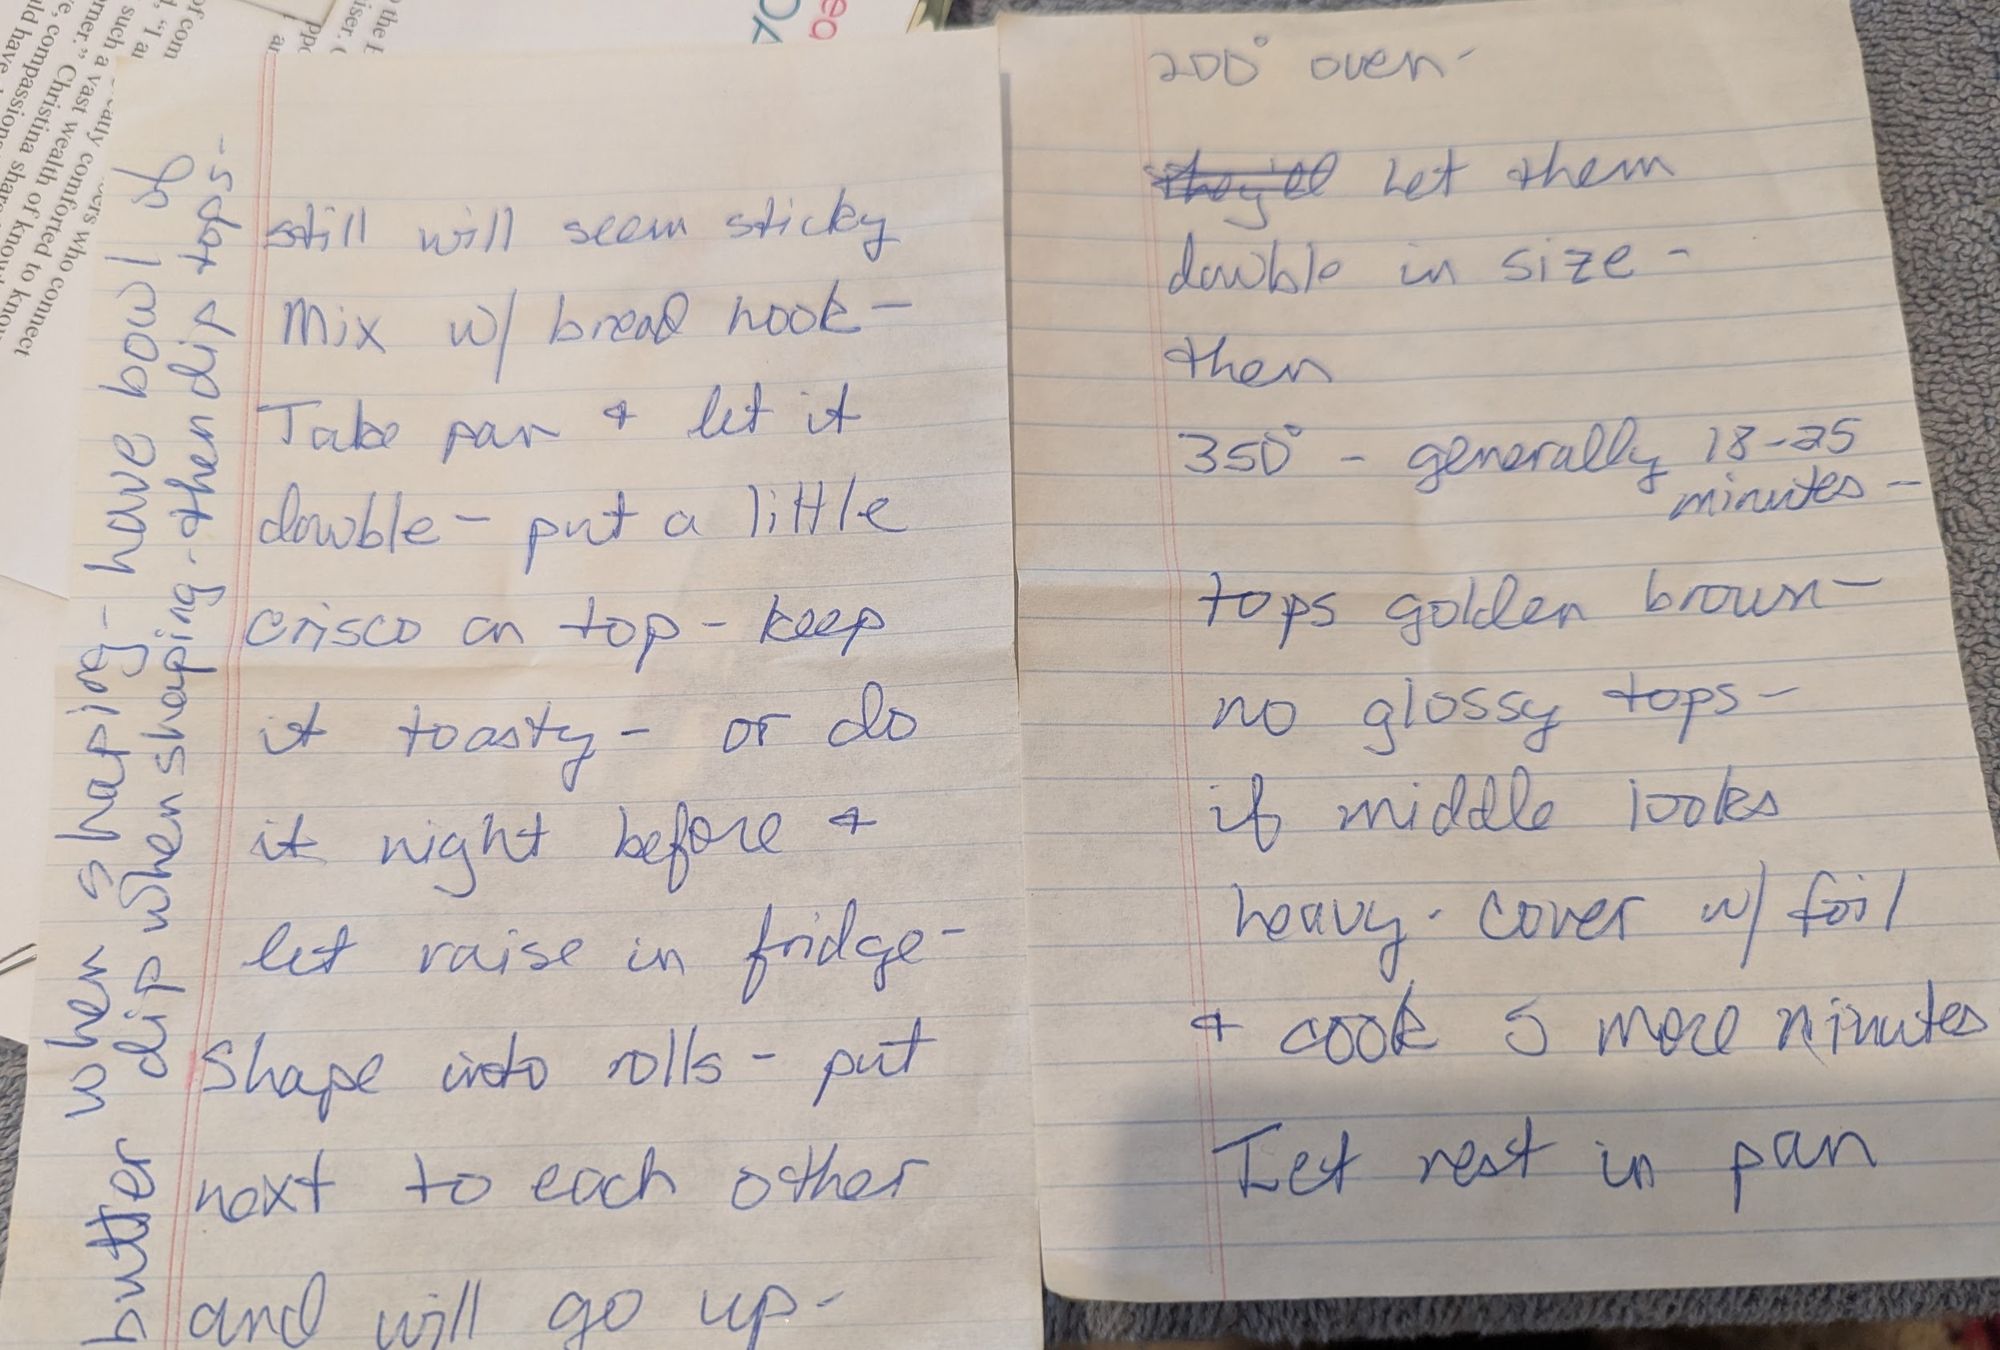 still will seem sticky
Mix w/ bread hook-
Take pan + let it
double - put a little
crisco on top - keep
it toasty - or do
it night before +
let raise in fridge-
Shape into rolls - put
next to each other
and will go up-
butter when shaping - have bowl of
dip when shaping - then dip tops-
200° oven-
they'll Let them
double in size -
then
350° - generally 18-25
minutes -
tops golden brown-
no glossy tops-
if middle looks
heavy - cover w/ foil
+ cook 5 more minutes
Let rest in pan
of com
such a vast wealth of know
comforted to know
ers who connect
Christina share
compassion
ld have